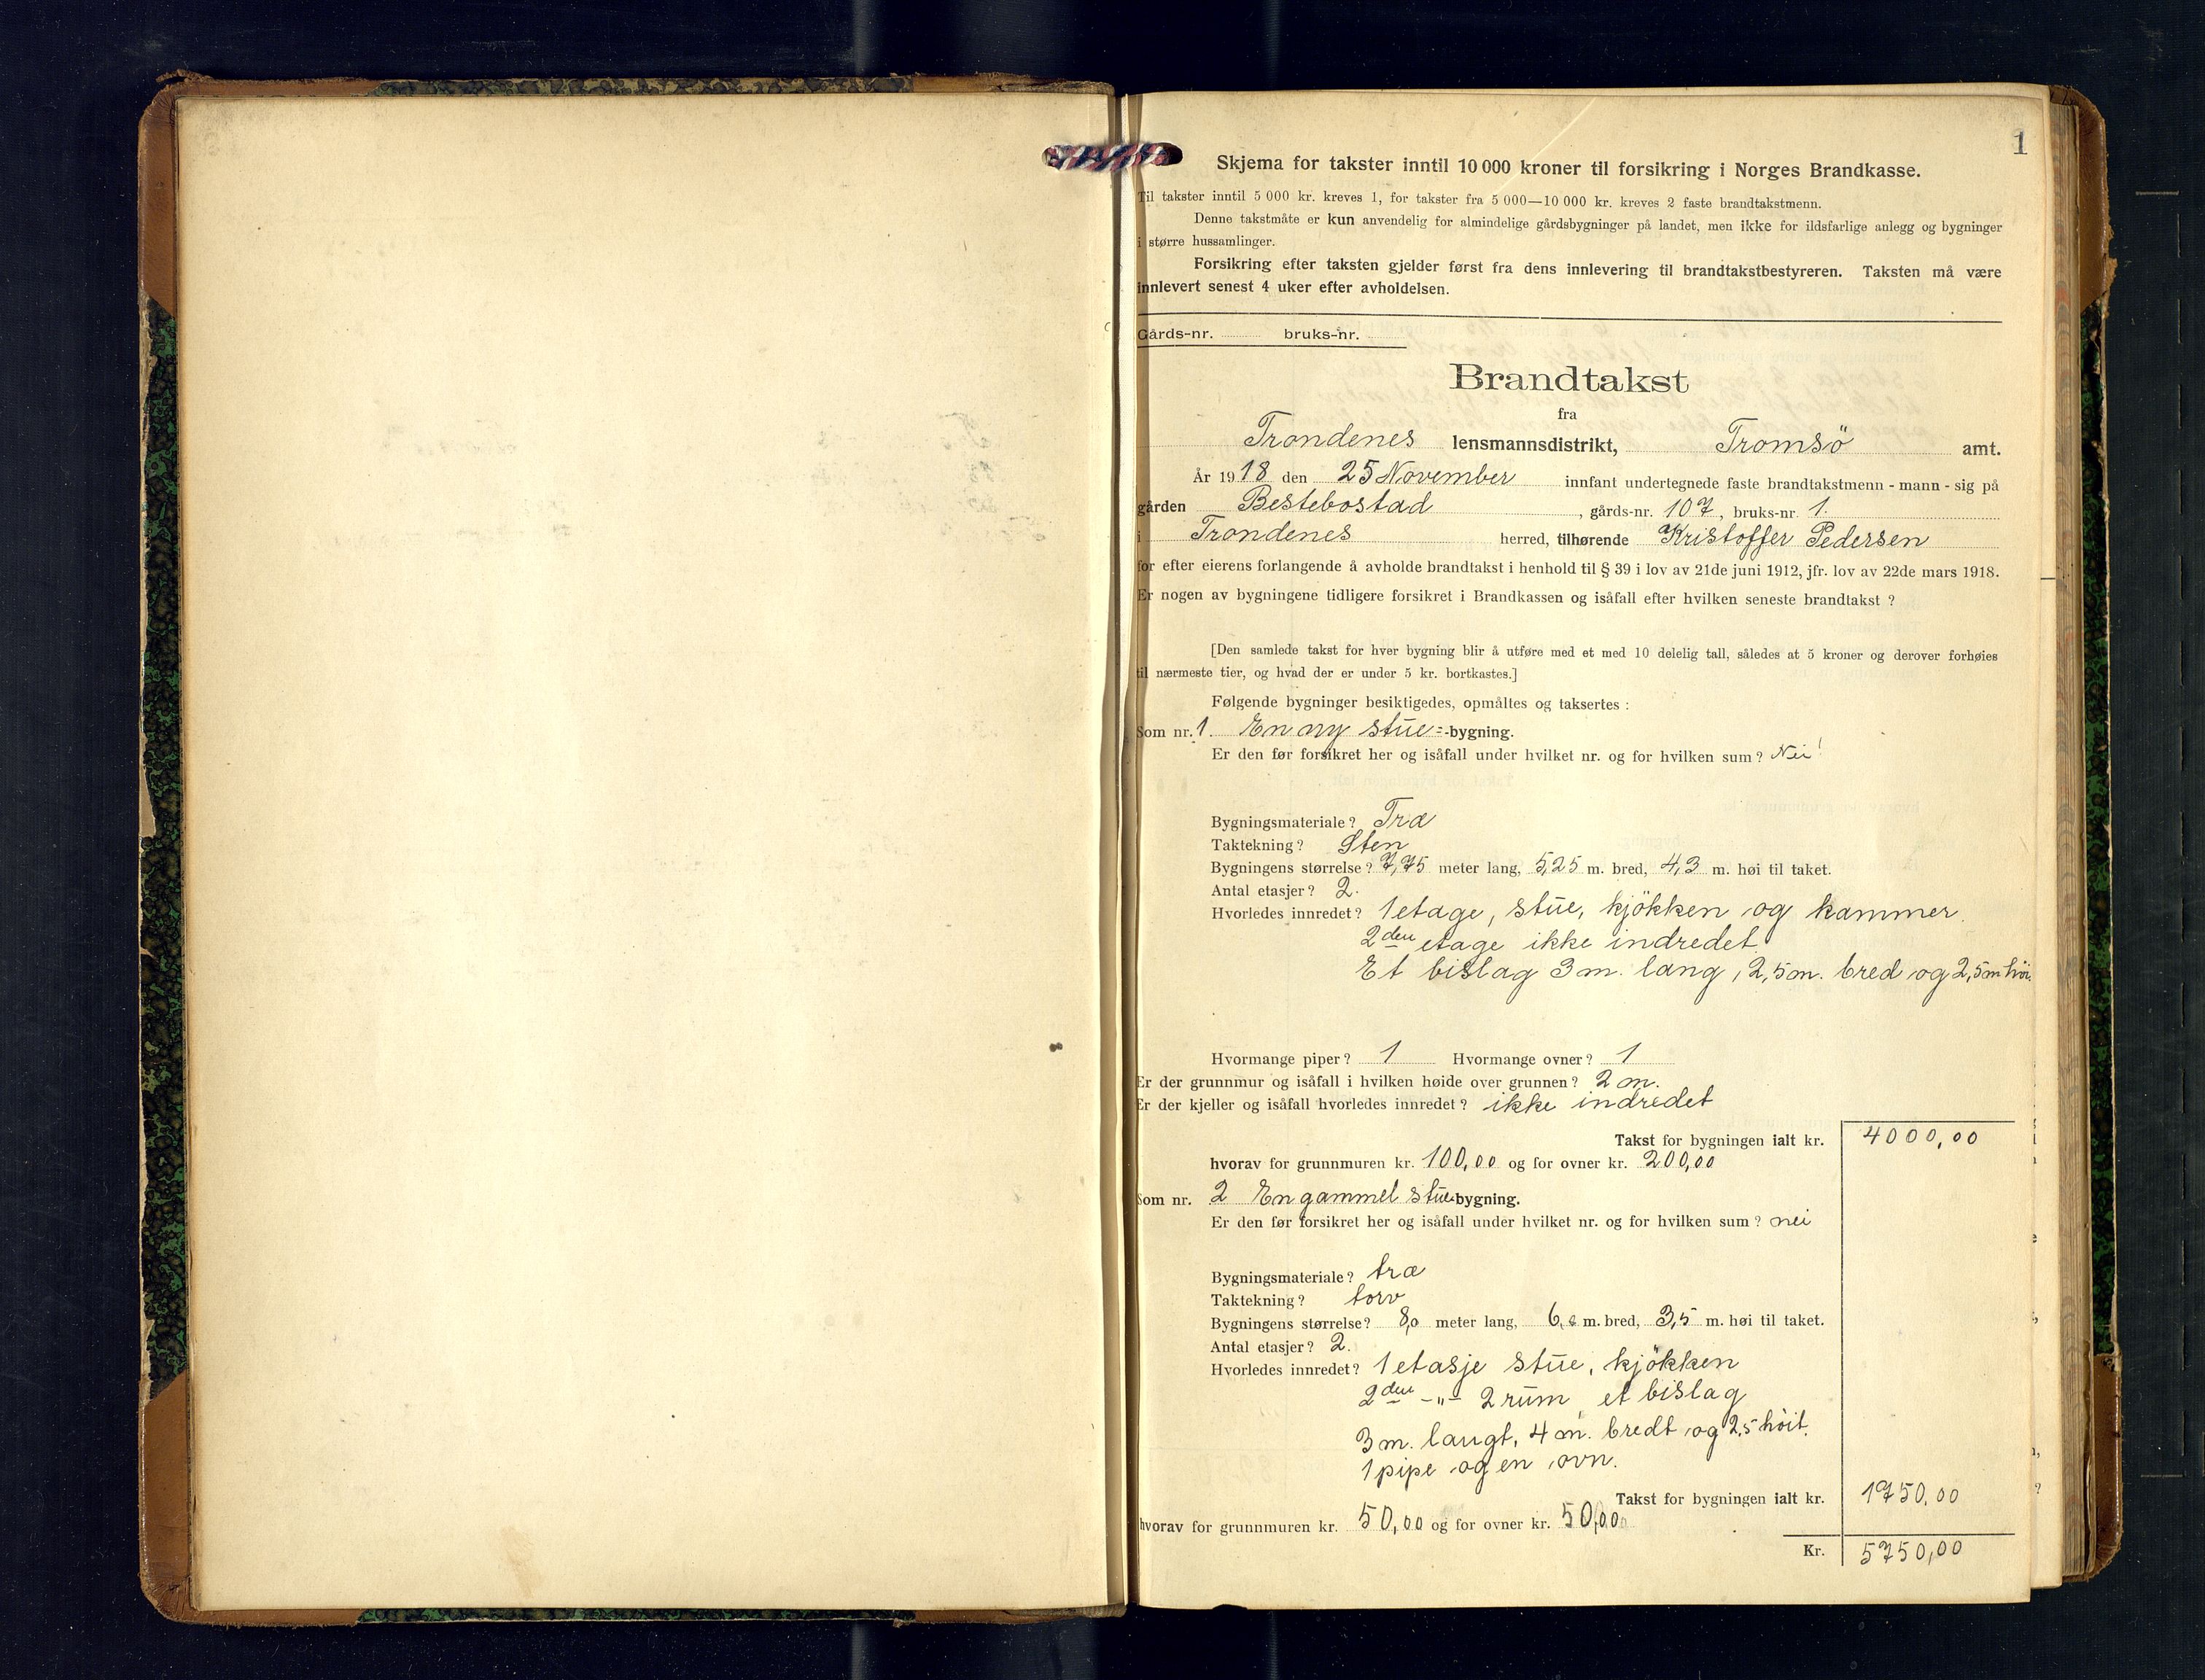 1
Skjema for takster inntil 10 000 kroner til forsikring i Norges Brandkasse.
Til takster inntil 5 000 kr. kreves 1, for takster fra 5 000—10 000 kr. kreves 2 faste brandtakstmenn.
Denne takstmåte er kun anvendelig for almindelige gårdsbygninger på landet, men ikke for ildsfarlige anlegg og bygninger
i større hussamlinger.
Forsikring efter taksten gjelder først fra dens innlevering til brandtakstbestyreren. Taksten må være
innlevert senest 4 uker efter avholdelsen.
Gårds-nr. bruks-nr.
Brandtakst
fra
Trondenes lensmannsdistrikt, Tromsö amt.
År 1918 den 25 November innfant undertegnede faste brandtakstmenn - mann - sig på
gården Bestebostad, gårds-nr. 107, bruks-nr. 1.
i Trondenes herred, tilhørende Kristoffer Pedersen
for efter eierens forlangende å avholde brandtakst i henhold til § 39 i lov av 21de juni 1912, jfr. lov av 22de mars 1918.
Er nogen av bygningene tidligere forsikret i Brandkassen og isåfall efter hvilken seneste brandtakst ?
[Den samlede takst for hver bygning blir å utføre med et med 10 delelig tall, således at 5 kroner og derover forhøies
til nærmeste tier, og hvad der er under 5 kr. bortkastes.]
Følgende bygninger besiktigedes, opmåltes og taksertes :
Som nr. 1. En ny stūe=-bygning.
Er den før forsikret her og isåfall under hvilket nr. og for hvilken sum ? Nei!
Bygningsmateriale ? Træ
Taktekning ? Sten
Bygningens størrelse ? 7,75 meter lang, 5,25 m. bred, 4,3 m. høi til taket.
Antal etasjer ? 2.
Hvorledes innredet ? 1 etage, stūe, kjökken og kammer.
2den etage ikke indredet
Et bislag 3 m. lang, 2,5 m. bred og 2,5 m höi.
Hvormange piper ? 1 Hvormange ovner ? 1
Er der grunnmur og isåfall i hvilken høide over grunnen ? 2 m.
Er der kjeller og isåfall hvorledes innredet ? ikke indredet
Takst for bygningen ialt kr. 4000,00
hvorav for grunnmuren kr. 100,00 og for ovner kr. 200,00
Som nr. 2 En gammel stūe-bygning.
Er den før forsikret her og isåfall under hvilket nr. og for hvilken sum ? nei
Bygningsmateriale ? træ
Taktekning ? torv
Bygningens størrelse ? 8,0 meter lang, 6, m. bred, 3,5 m. høi til taket.
Antal etasjer ? 2.
Hvorledes innredet ? 1 etasje stūe, kjökken
2den -"- 2 rūm, et bislag
3 m. langt, 4 m. bredt og 2,5 höit.
1 pipe og en ovn.
Takst for bygningen ialt kr. 1750,00
hvorav for grunnmuren kr. 50,00 og for ovner kr. 50,00
Kr. 5750,00